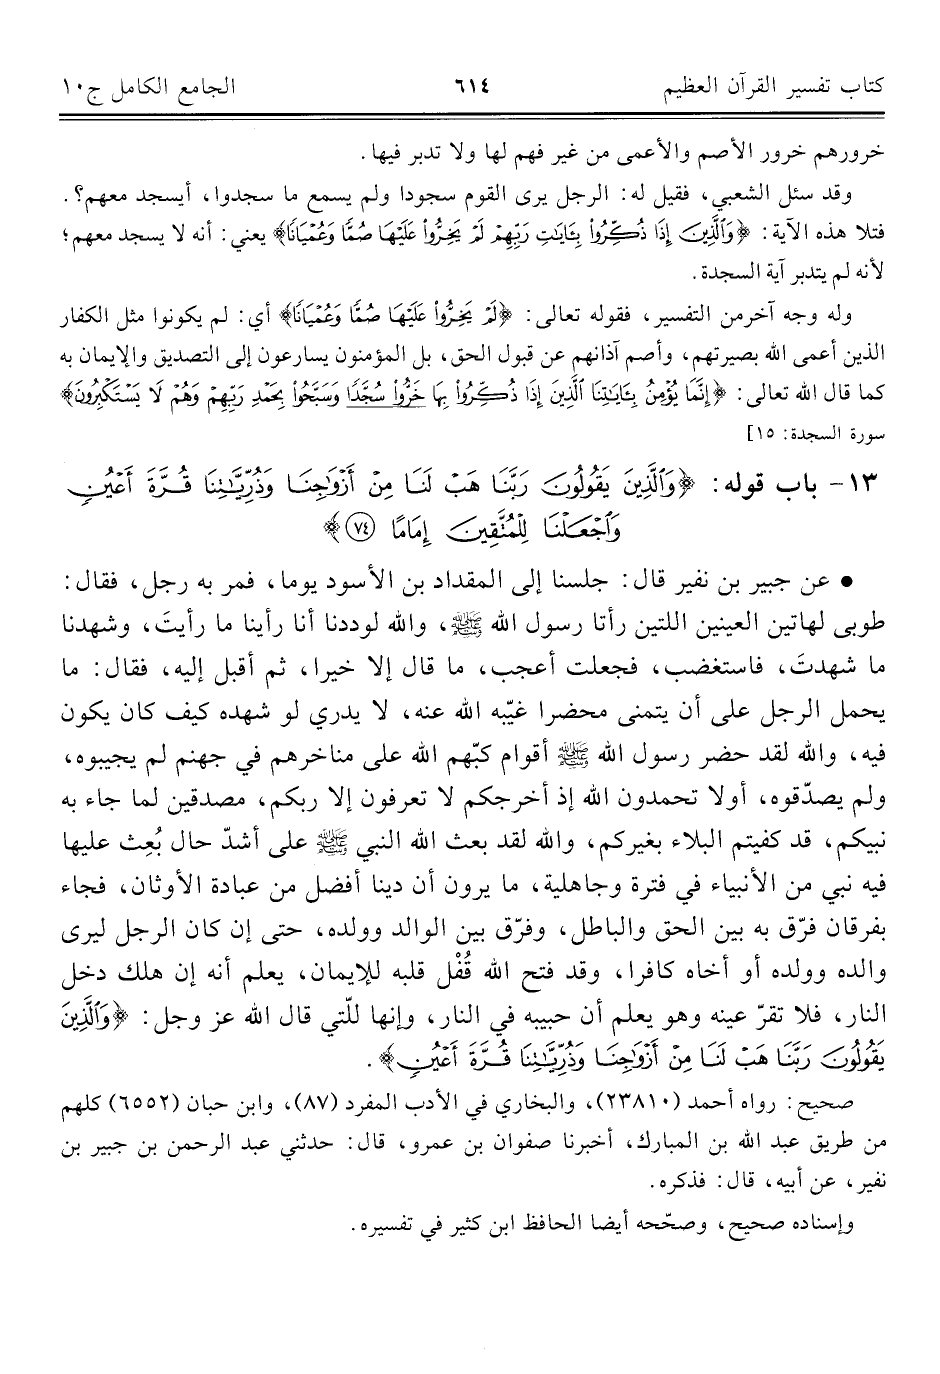 كتاب تفسير القرآن العظيم ٦١٤ الجامع الكامل ج١٠
خرورهم خرور الأصم والأعمى من غير فهم لها ولا تدبر فيها.
وقد سئل الشعبي، فقيل له: الرجل يرى القوم سجودا ولم يسمع ما سجدوا، أيسجد معهم؟.
فتلا هذه الآية: ﴿وَٱلَّذِينَ إِذَا ذُكِّرُواْ بِـَٔايَٰتِ رَبِّهِمْ لَمْ يَخِرُّواْ عَلَيْهَا صُمًّا وَعُمْيَانًا﴾ يعني: أنه لا يسجد معهم؛
لأنه لم يتدبر آية السجدة.
وله وجه آخرمن التفسير، فقوله تعالى: ﴿لَمْ يَخِرُّواْ عَلَيْهَا صُمًّا وَعُمْيَانًا﴾ أي: لم يكونوا مثل الكفار
الذين أعمى الله بصيرتهم، وأصم آذانهم عن قبول الحق، بل المؤمنون يسارعون إلى التصديق والإيمان به
كما قال الله تعالى: ﴿إِنَّمَا يُؤْمِنُ بِـَٔايَٰتِنَا ٱلَّذِينَ إِذَا ذُكِّرُواْ بِهَا خَرُّواْ سُجَّدًا وَسَبَّحُواْ بِحَمْدِ رَبِّهِمْ وَهُمْ لَا يَسْتَكْبِرُونَ﴾
سورة السجدة: ١٥]
١٣- باب قوله: ﴿وَٱلَّذِينَ يَقُولُونَ رَبَّنَا هَبْ لَنَا مِنْ أَزْوَٰجِنَا وَذُرِّيَّٰتِنَا قُرَّةَ أَعْيُنٍ
وَٱجْعَلْنَا لِلْمُتَّقِينَ إِمَامًا ٧٤﴾
• عن جبير بن نفير قال: جلسنا إلى المقداد بن الأسود يوما، فمر به رجل، فقال:
طوبى لهاتين العينين اللتين رأتا رسول الله ﷺ، والله لوددنا أنا رأينا ما رأيتَ، وشهدنا
ما شهدتَ، فاستغضب، فجعلت أعجب، ما قال إلا خيرا، ثم أقبل إليه، فقال: ما
يحمل الرجل على أن يتمنى محضرا غيّبه الله عنه، لا يدري لو شهده كيف كان يكون
فيه، والله لقد حضر رسول الله ﷺ أقوام كبّهم الله على مناخرهم في جهنم لم يجيبوه،
ولم يصدّقوه، أولا تحمدون الله إذ أخرجكم لا تعرفون إلا ربكم، مصدقين لما جاء به
نبيكم، قد كفيتم البلاء بغيركم، والله لقد بعث الله النبي ﷺ على أشدّ حال بُعِث عليها
فيه نبي من الأنبياء في فترة وجاهلية، ما يرون أن دينا أفضل من عبادة الأوثان، فجاء
بفرقان فرّق به بين الحق والباطل، وفرّق بين الوالد وولده، حتى إن كان الرجل ليرى
والده وولده أو أخاه كافرا، وقد فتح الله قُفْل قلبه للإيمان، يعلم أنه إن هلك دخل
النار، فلا تقرّ عينه وهو يعلم أن حبيبه في النار، وإنها للّتي قال الله عز وجل: ﴿وَٱلَّذِينَ
يَقُولُونَ رَبَّنَا هَبْ لَنَا مِنْ أَزْوَٰجِنَا وَذُرِّيَّٰتِنَا قُرَّةَ أَعْيُنٍ﴾.
صحيح: رواه أحمد (٢٣٨١٠)، والبخاري في الأدب المفرد (٨٧)، وابن حبان (٦٥٥٢) كلهم
من طريق عبد الله بن المبارك، أخبرنا صفوان بن عمرو، قال: حدثني عبد الرحمن بن جبير بن
نفير، عن أبيه، قال: فذكره.
وإسناده صحيح، وصحّحه أيضا الحافظ ابن كثير في تفسيره.